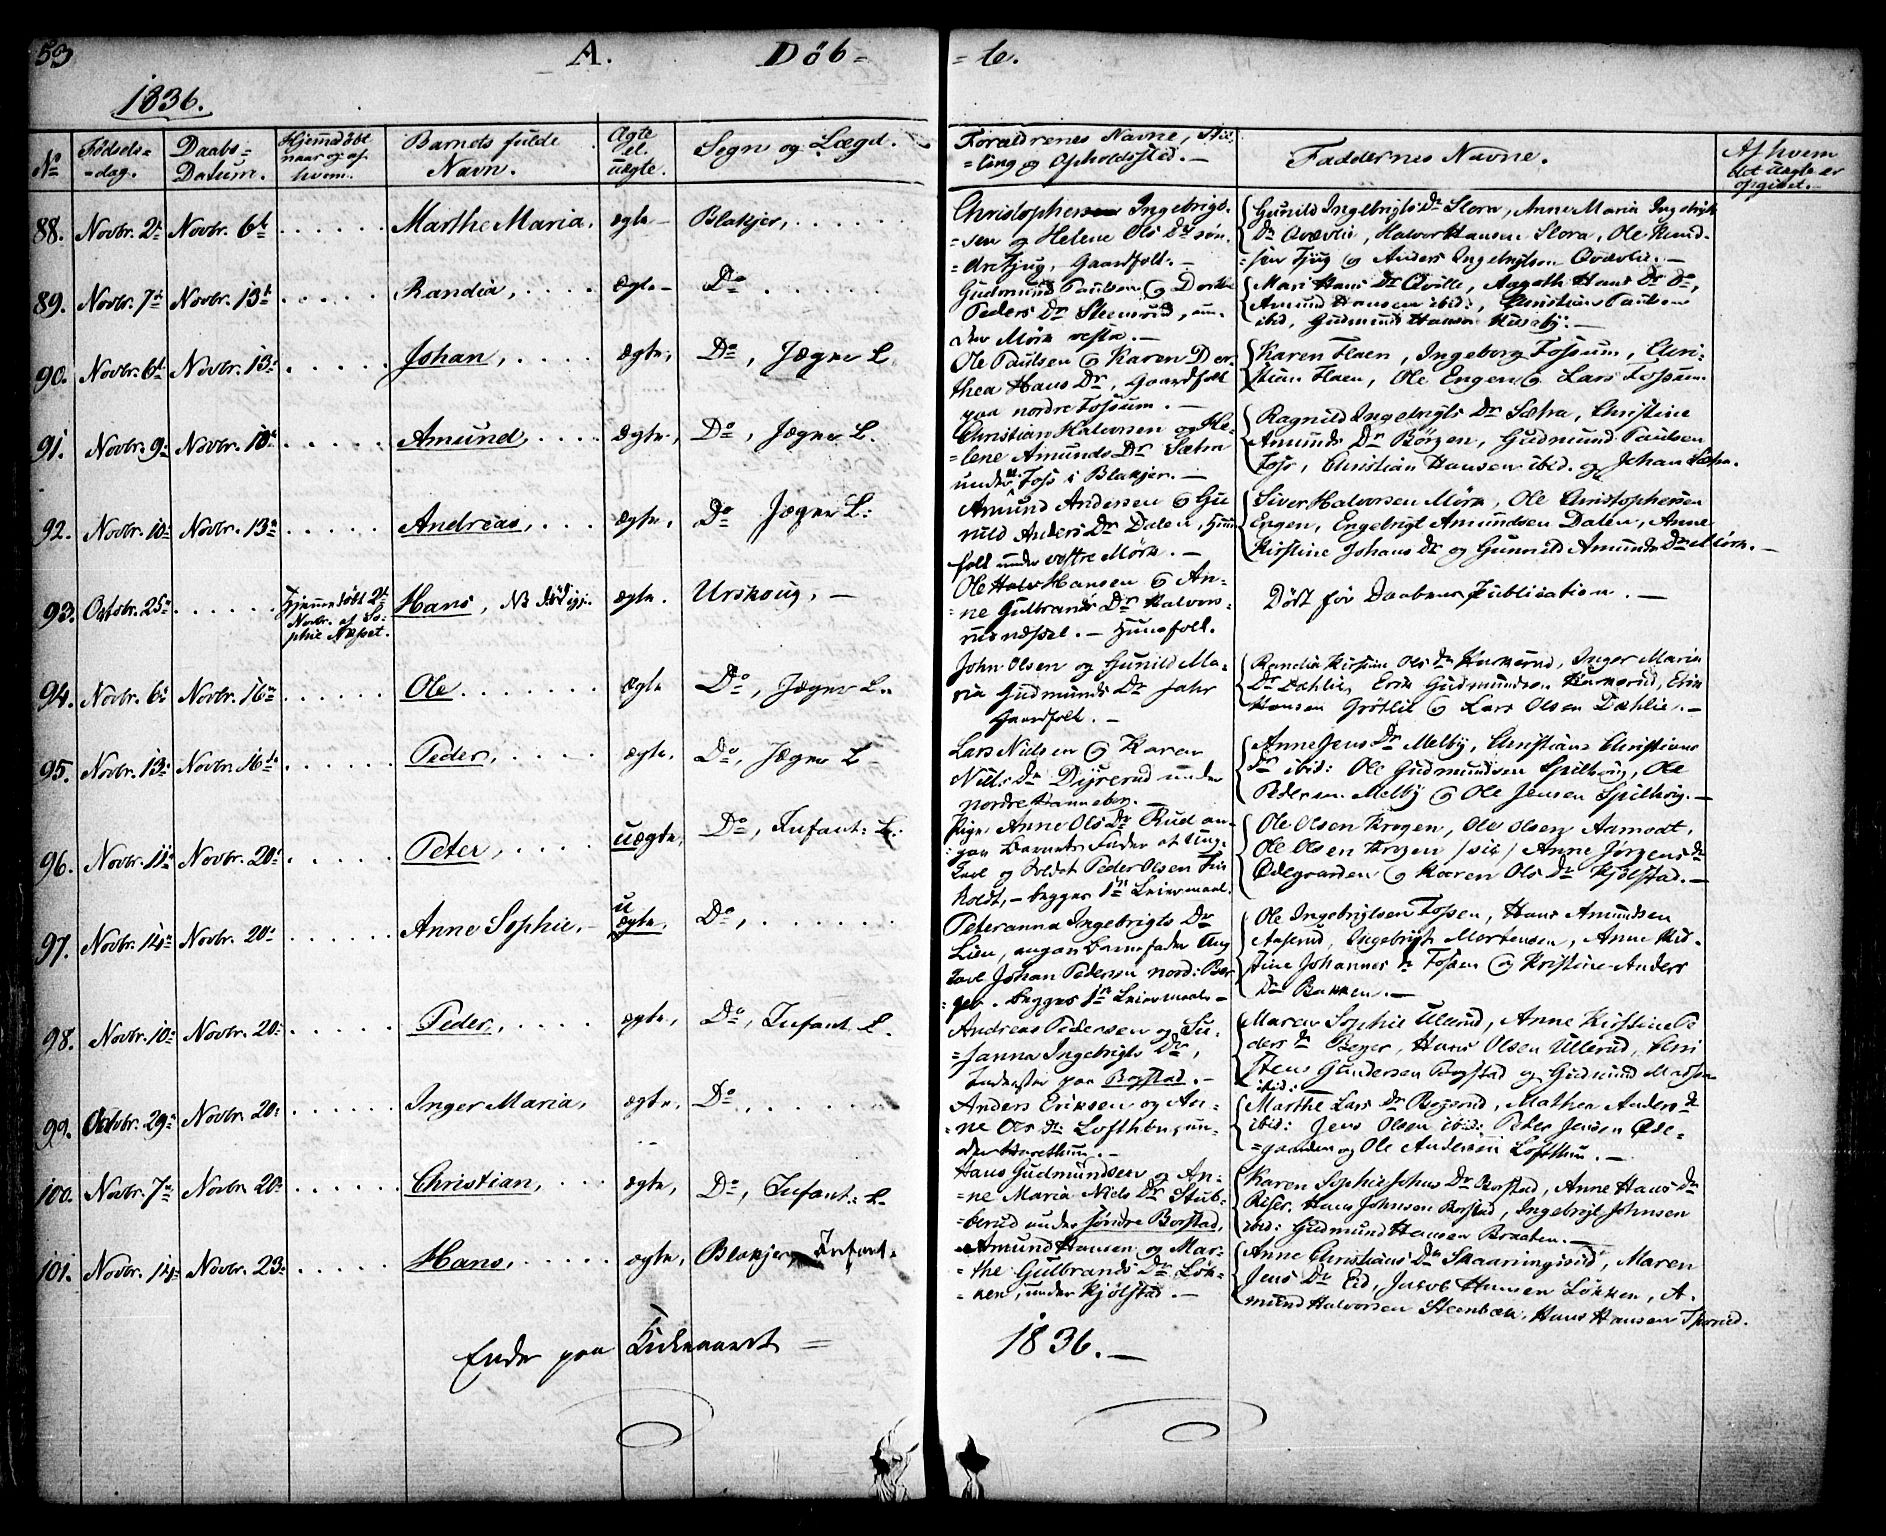 53 A. Döb= =te.
1836.
No Fødsels=dag. Daabs=Datum. Hjemmedöbt naar og af hvem. Barnets fulde Navn. Ægte el. uægte. Sogn og Lægd. Forældrenes Navne, Stilling og Opholdssted.— Faddernes Navne. Af hvem det uægte er opgivet.—
88. Novbr. 2 Novbr. 6t Marthe Maria, ægte— Blakjer,
Christophersen Ingebrigt=
=sen og Helene Ols Dr søn=
=dre Tjug, Gaardfolk.—
Gunild Ingebrigts Dr Slora, Anne Maria Ingebrigts
Dr Qvævlie, Halvor Hansen Slora, Ole Knud=
=sen Tjug og Anders Ingebrigtsen Qvævlie.—
89. Novbr. 7 Novbr. 13t Randia, ægte— Do
Gudmund Paulsen og Dorthe
Peders Dr Steensrud, un=
der Mörk vestre.—
Mari Hans Dr Qville, Aagoth Hans Dr Do,
Amund Hansen ibid:, Christian Paulsen
ibid, Gudmund Hansen Huseby.—
90. Novbr. 6t Novbr. 13 Johan, ægte, Do, Jæger L.
Ole Paulsen og Karen Dor=
thea Hans Dr, Gaardfolk
paa nordre Fossum.—
Karen Flaen, Ingeborg Fossum, Chri=
stian Flaen, Ole Engen og Lars Fossum
91. Novbr. 9 Novbr. 10 Amund, ægte, Do, Jæger L.
Christian Halvorsen og He=
=lene Amunds Dr Sætra
under Foss i Blakjer.—
Ragnild Ingebrigts Dr Sætra, Christine
Amunds Dr Börgen, Gudmund Paulsen
Foss, Christian Hansen ibid. og Johan Sætra.
92. Novbr. 10 Novbr. 13 Andreas, ægte, Do Jæger L:
Amund Andersen og Gu=
nild Anders Dr Dalen, Huus=
folk under vestre Mörk.—
Siver Halvorsen Mörk, Ole Christophersen
Engen, Engebrigt Amundsen Dalen, Anne
Kirstine Johans Dr og Gunnild Amunds Dr Mörk.—
93. Octobr. 25 Hjemmedöbt 2t Novbr. af Sophie Næsset. Hans, NB. ægte. Urskoug,—
Ole Hansen og An=
=ne Gulbrands Dr Halvors=
rudnæsset.— Huusfolk.
Dödt før Daabens Publication.—
94. Novbr. 6 Novbr. 16 Ole ægte Do, Jæger L.
John Olsen og Gunild Ma=
ria Gudmunds Dr Jahr
Gaardfolk.—
Randia Kirstine Ols Dr Kurkerud, Inger Maria
Dr Dæhlie, Erik Gudmundsen Kurkerud, Erik
Hansen Grötlie og Lars Olsen Dæhlie.—
95. Novbr. 13 Novbr. 16 Peder, ægte, Do, Jæger L—
Lars Nielsen og Karen
Niels Dr Dyrerud under
nordre Hanneborg.—
Anne Jens Dr Melby, Christiane Christians
Dr ibid: Ole Gudmundsen Spilhoug, Ole
Pedersen Melby og Ole Jensen Spilhoug.—
96. Novbr. 11 Novbr. 20 Peter, uægte, Do, Infant: L.
Pige Anne Ols Dr Rud an=
=gav Barnets Fader at Ung=
karl og Soldat Peder Olsen
holdt,— begges 1ste Leiermaal.
Ole Olsen Krogen, Ole Olsen Aamodt,
Ole Olsen Krogen /sic/ Anne Jörgens Dr
Ödegaarden og Karen Ols Dr Kjölstad.—
97. Novbr. 14 Novbr. 20 Anne Sophie,— uægte, Do,
Peteranna Ingebrigts Dr
Lien, angav Barnefader Ung=
karl Johan Pedersen nord: Ber=
=ger. begges 1ste Leiermaal—
Ole Ingebrigtsen Fossen, Hans Amundsen
Aaserud, Ingebrigt Mortensen, Anne Kir=
stine Johannes Dr Fossen og Kristine Anders
Dr Bakken.—
98. Novbr. 10 Novbr. 20 Peder, ægte, Do, Infant. L.
Andreas Pedersen og Su=
=sanna Ingebrigts Dr,
Inderster paa Borstad.—
Maren Sophie Ullerud, Anne Kirstine Pe
ders Dr Berger, Hans Olsen Ullerud, Chri
stens Gundersen Borstad og Gudmund Madsen
ibid:
99. Octobr. 29 Novbr. 20 Inger Maria, ægte, Do
Anders Eriksen og An=
=ne Ols Dr Lofthun, un=
der Haretthun.—
Marthe Lars Dr Bogsrud, Mathea Anders Dr
ibid: Jens Olsen ibid: Peter Jensen Öde=
=gaarden og Ole Andersen Lofthun.—
100. Novbr. 7 Novbr. 20 Christian, ægte, Do, Infant: L.
Hans Gudmundsen og An=
=ne Maria Niels Dr Stub=
=berud under söndre Borstad,
Karen Sophie Johns Dr Borstad, Anne Hans Dr
Riser, Hans Johnsen Borstad, Ingebrigt Johnsen
ibid: Gudmund Hansen Braaten.—
101. Novbr. 14 Novbr. 23 Hans, ægte, Blakjer, Infant.
Amund Hansen og Mar=
=the Gulbrands Dr Løk=
=ken, under Kjölstad.—
Anne Christians Dr Skaaringsrud, Maren
Jens Dr Eid, Jacob Hansen Løkken, A=
mund Halvorsen Steenbæk, Hans Hansen
Ende paa Kirkeaaret = 1836.—